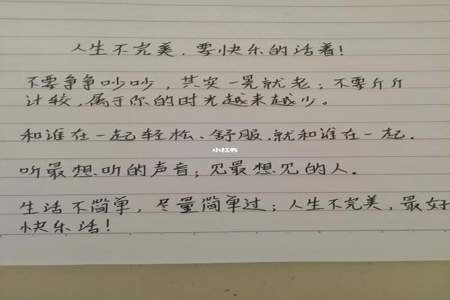 人生不完美，要快乐的活着！
不要争争吵吵，其实一晃就老；不要斤斤
计较，属于你的时光越来越少。
和谁在一起轻松、舒服，就和谁在一起．
小红书
听最想听的声音；见最想见的人．
生活不简单，尽量简单过；人生不完美，最好
快乐活！